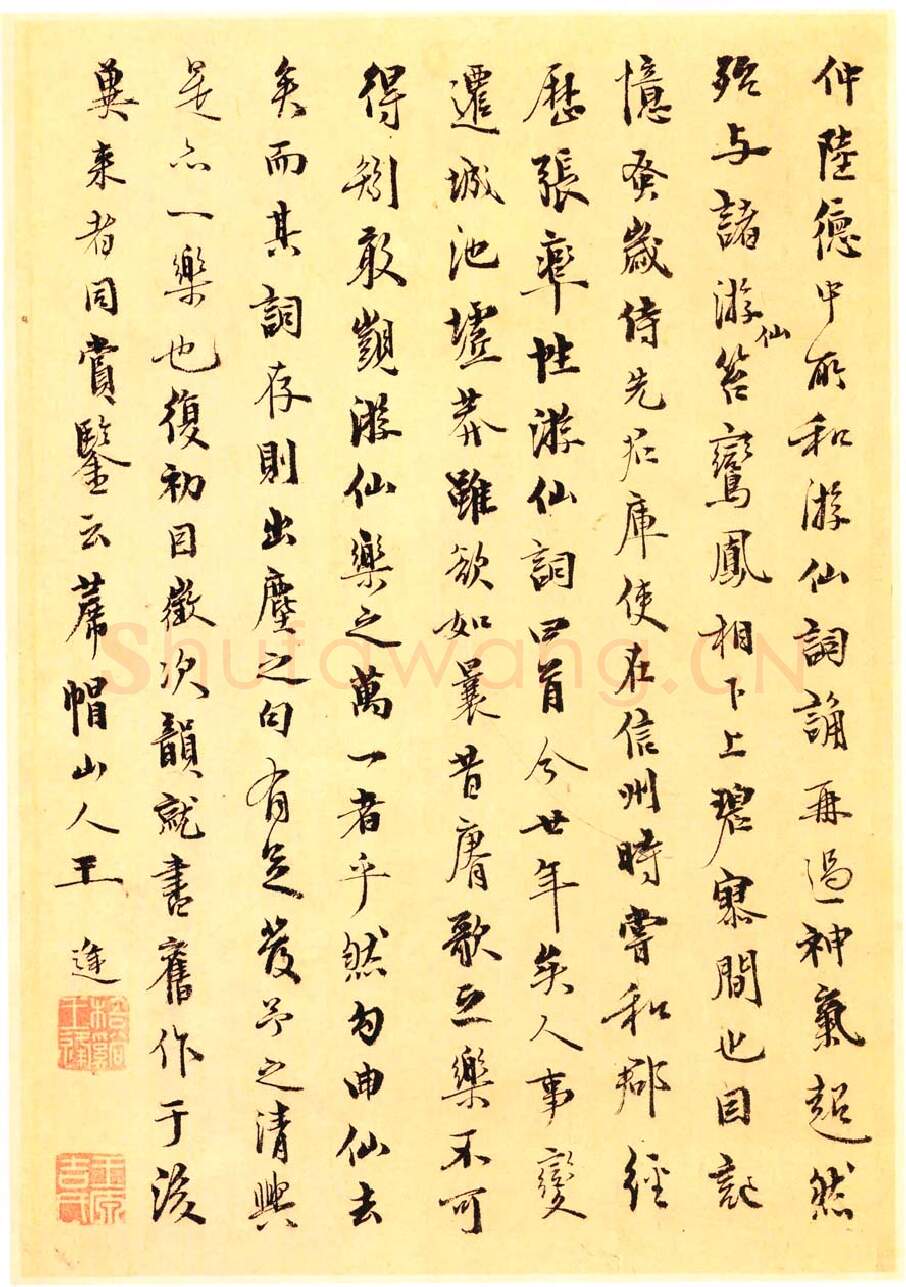 仲陸德中所和游仙詞誦再過神氣超然
殆与諸游仙笞鸞鳳相下上碧寥間也因記
憶癸歲侍先君庫使在信州時嘗和郡經
歷張率性游仙詞四首今廿年矣人事變
遷城池墟莽雖欲如曩昔賡歌之樂不可
得別敢覬游仙樂之萬一者乎然勾曲仙去
矣而其詞存則出塵之句有足發予之清興
是亦一樂也復初因徵次韻就書舊作于後
冀來者同賞鑒云蓆帽山人王逢
Shufawang.CN